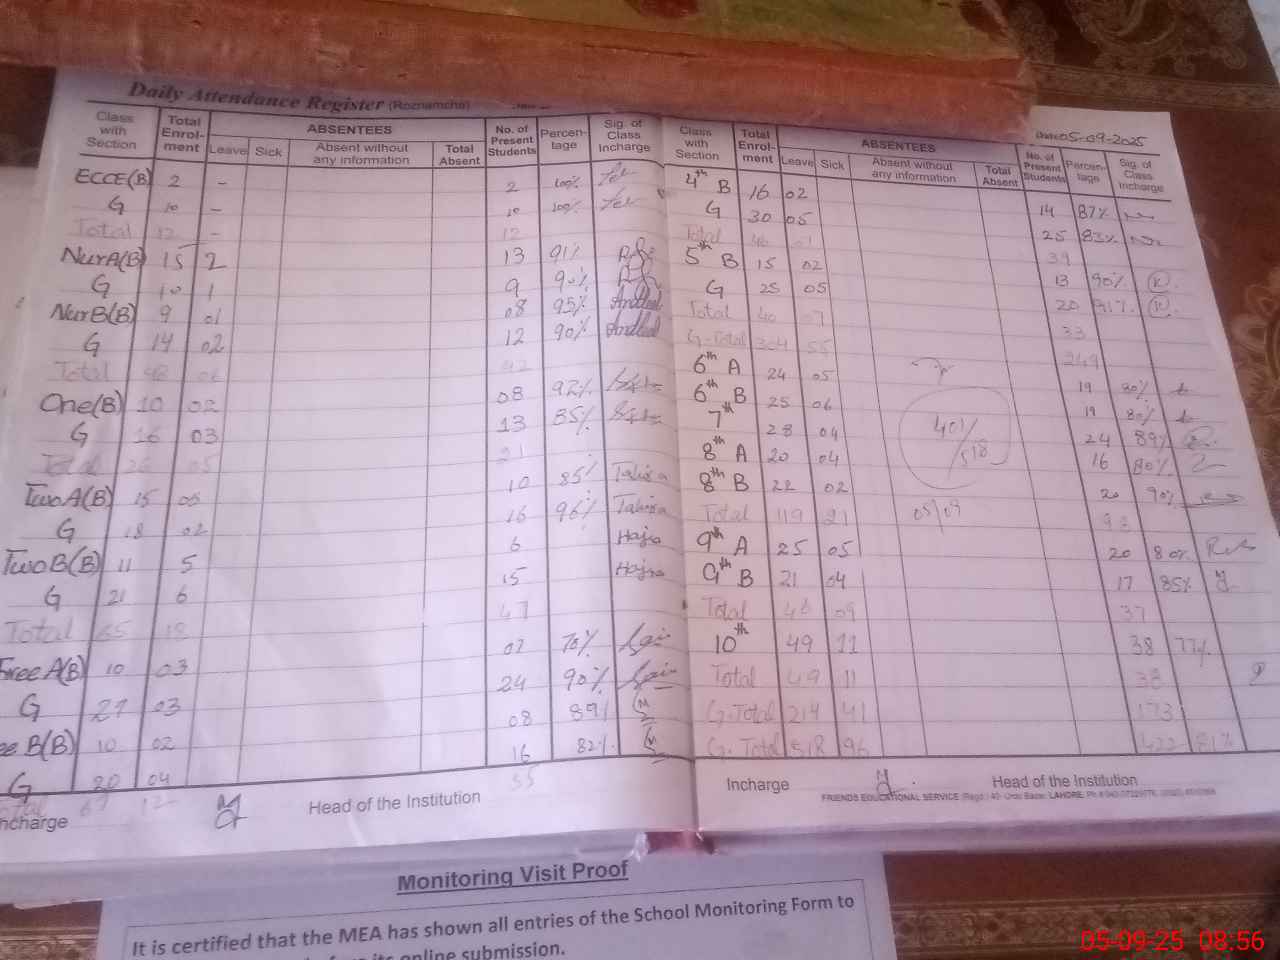 Daily Attendance Register (Roznamcha)
Class with Section | Total Enrol-ment | ABSENTEES | Leave | Sick | Absent without any information | Total Absent | No. of Present Students | Percen-tage | Sig. of Class Incharge
ECCE(B) 2 - 2 100%
G 10 - 10 100%
Total 12 - 12
NurA(B) 15 2 13 91%
G 10 1 9 90%
NurB(B) 9 01 08 95%
G 14 02 12 90%
Total 42
One(B) 10 02 08 92%
G 16 03 13 85%
Total 26 05 21
TwoA(B) 15 05 10 85% Tahira
G 18 02 16 96% Tahira
TwoB(B) 11 5 6 Hajra
G 21 6 15 Hajra
Total 65 18 47
A(B) 10 03 07 70%
G 27 03 24 90%
B(B) 10 02 08 89%
G 20 04 16 82%
Total 67 12 55
Incharge Head of the Institution
Date 05-09-2025
Class with Section | Total Enrol-ment | ABSENTEES | Leave | Sick | Absent without any information | Total Absent | No. of Present Students | Percen-tage | Sig. of Class Incharge
4th B 16 02 14 87%
G 30 05 25 83%
Total 46 39
5th B 15 02 13 90%
G 25 05 20 91%
Total 40 07 33
G.Total 304 55 249
6th A 24 05 19 80%
6th B 25 06 19 80%
7th 28 04 24 89%
8th A 20 04 16 80%
8th B 22 02 20 90%
Total 119 21 98
9th A 25 05 20 80%
9th B 21 04 17 85%
Total 46 09 37
10th 49 11 38 77%
Total 49 11 38
G.Total 214 41 173
G.Total 518 96 422 81%
401/518
05/09
Incharge Head of the Institution
FRIENDS EDUCATIONAL SERVICE (Regd.) 40- Urdu Bazar, LAHORE.
Monitoring Visit Proof
It is certified that the MEA has shown all entries of the School Monitoring Form to
its online submission.
05-09-25 08:56